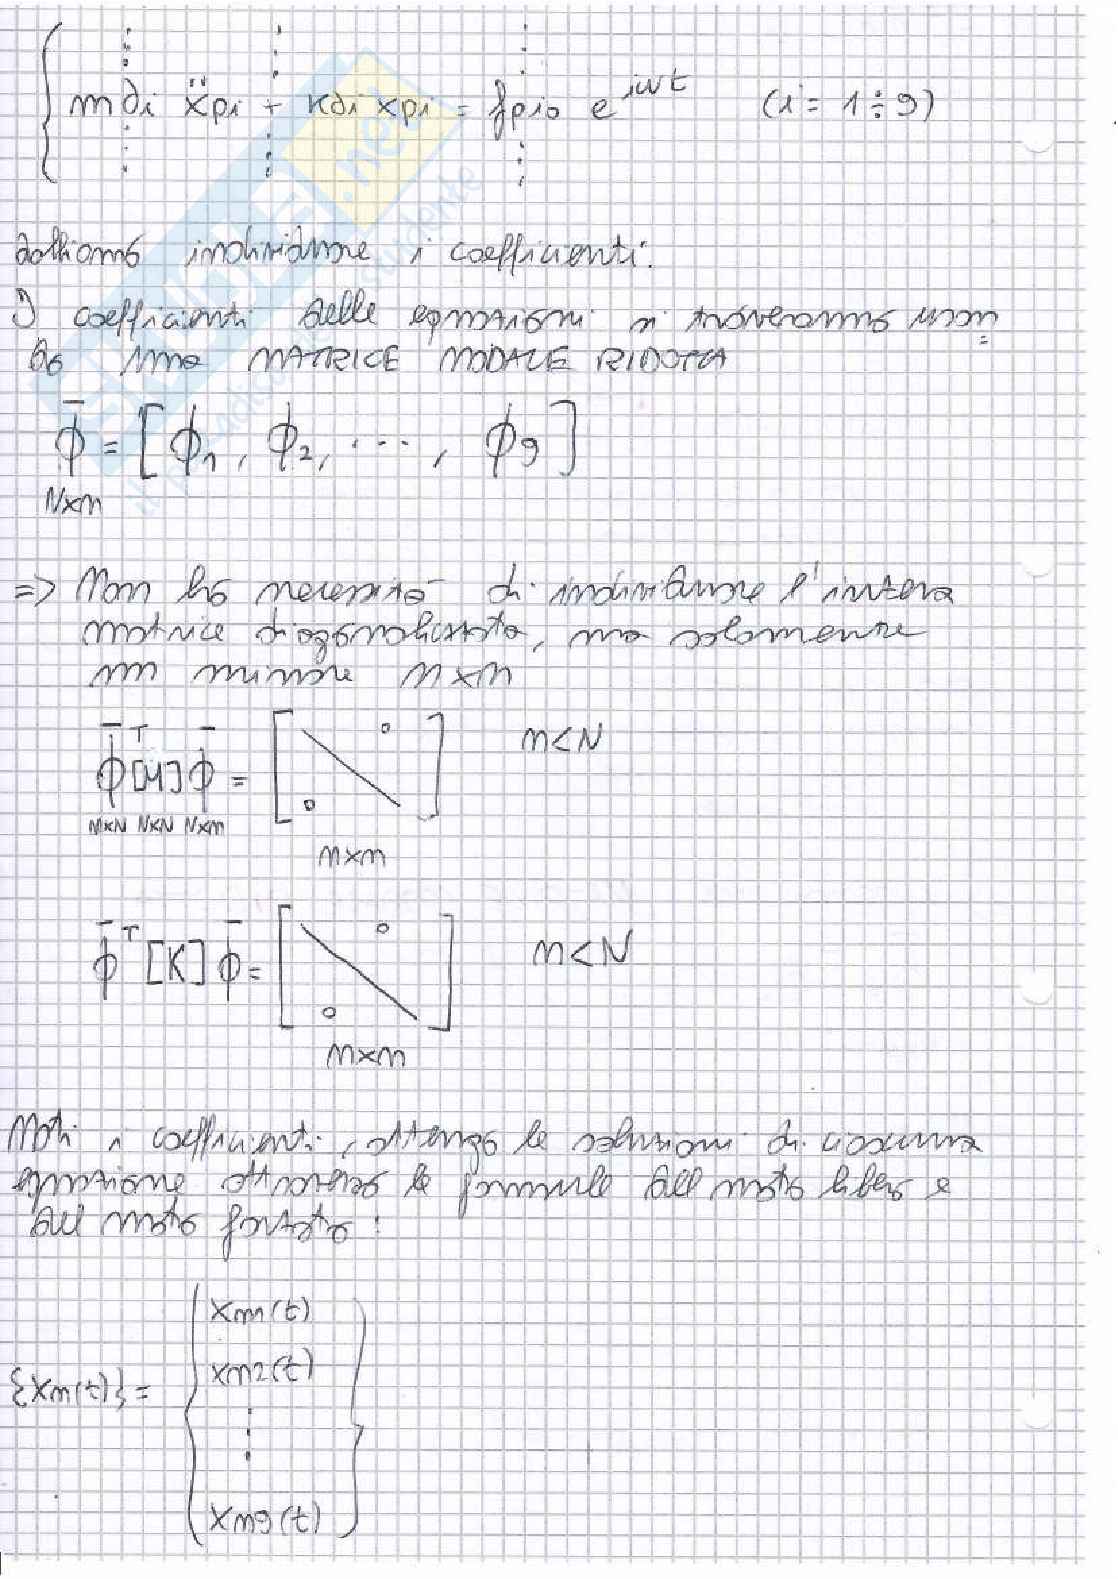 m di ẍpi + kdi xpi = fpio e^iωt (i = 1÷9)
dobbiamo individuare i coefficienti.
I coefficienti delle equazioni si troveranno usan=
do una MATRICE MODALE RIDOTTA
Φ̄ = [ϕ1, ϕ2, ..., ϕ9]
N×n
=> Non ho necessità di individuare l'intera
matrice diagonalizzata, ma solamente
un minore n×n
Φ̄^T [M] Φ̄ = [ \ 0 0 ] n<N
n×N N×N N×n
n×n
Φ̄^T [K] Φ̄ = [ \ 0 0 ] n<N
n×n
Noti i coefficienti, ottengo le soluzioni di ciascuna
equazione attraverso le formule del moto libero e
del moto forzato:
{xn(t)} = { xn1(t)
xn2(t)
⋮
xn9(t) }
SKUOLA.net